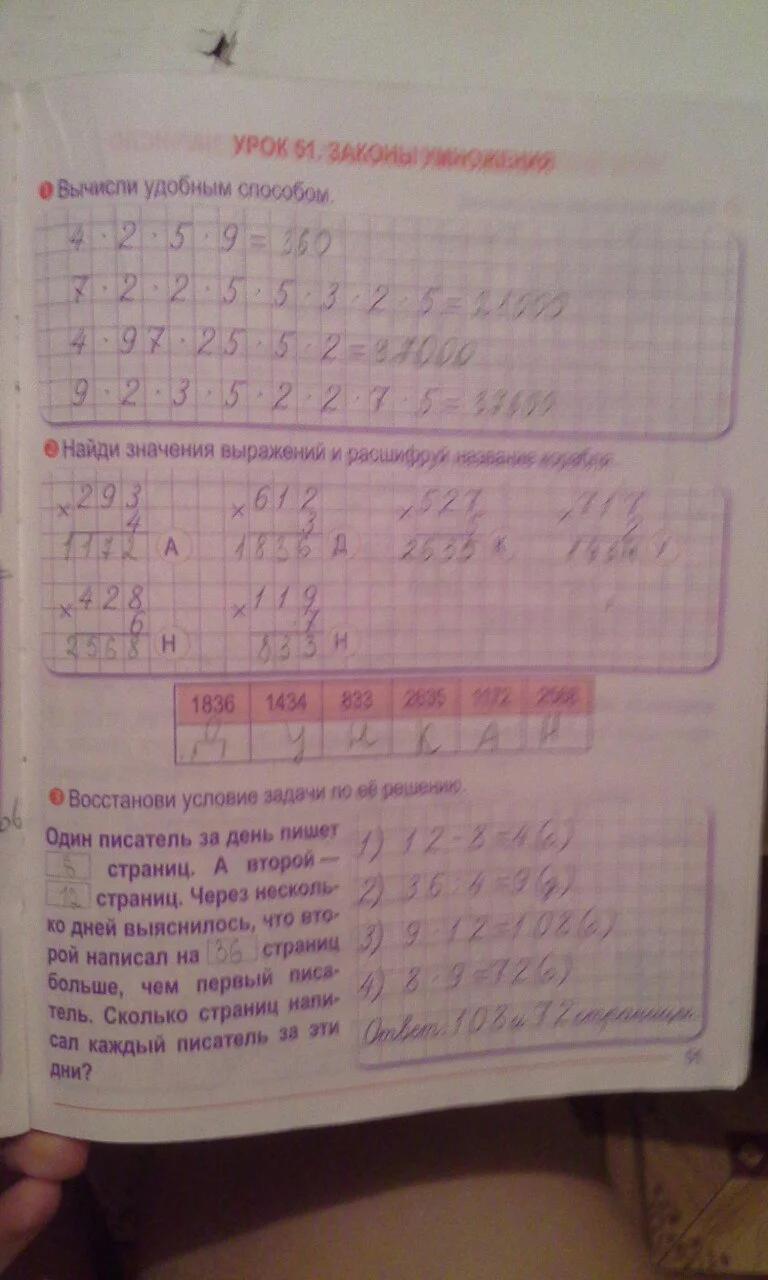 УРОК 51. ЗАКОНЫ УМНОЖЕНИЯ
1 Вычисли удобным способом.
4 · 2 · 5 · 9 = 360
7 · 2 · 2 · 5 · 5 · 3 · 2 · 5 = 21000
4 · 97 · 25 · 5 · 2 = 97000
9 · 2 · 3 · 5 · 2 · 2 · 7 · 5 =
2 Найди значения выражений и расшифруй название корабля.
× 293 × 612 × 527 × 717
4 3 5 2
1172 А 1836 Д 2635 К 1434 У
× 428 × 119
6 7
2568 Н 833 Н
1836 1434 833 2635 1172 2568
Д У Н К А Н
3 Восстанови условие задачи по её решению.
Один писатель за день пишет
8 страниц. А второй —
12 страниц. Через несколь-
ко дней выяснилось, что вто-
рой написал на 36 страниц
больше, чем первый писа-
тель. Сколько страниц напи-
сал каждый писатель за эти
дни?
1) 12 - 8 = 4 (с)
2) 36 : 4 = 9 (д)
3) 9 · 12 = 108 (с)
4) 8 · 9 = 72 (с)
Ответ: 108 и 72 страницы.